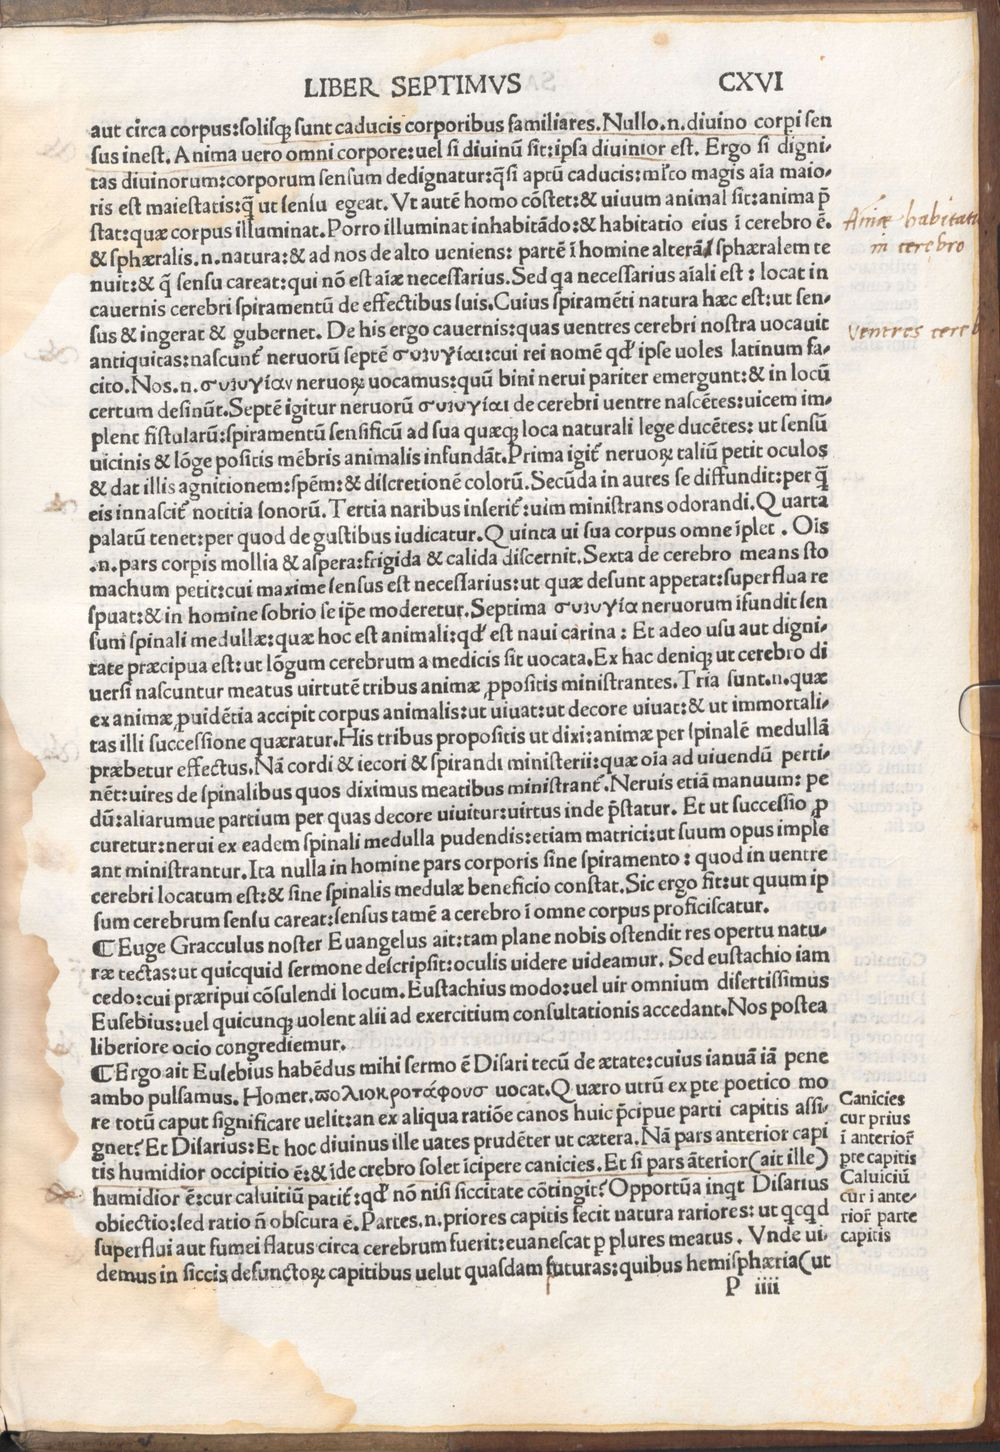 LIBER SEPTIMVS CXVI
aut circa corpus:solisq; sunt caducis corporibus familiares.Nullo.n.diuino corpi sen
sus inest. Anima uero omni corpore:uel si diuinū sit:ipsa diuinior est. Ergo si digni-
tas diuinorum:corporum sensum dedignatur:q̄si aptū caducis:mľto magis aīa maio-
ris est maiestatis:q̄ ut sensu egeat. Vt autē homo cōstet:& uiuum animal sit:anima p̄
stat:quæ corpus illuminat.Porro illuminat inhabitādo:& habitatio eius ī cerebro ē.
& sphæralis.n.natura:& ad nos de alto ueniens: partē ī homine alterā/ sphæralem te
nuit:& q̄ sensu careat:qui nō est aīæ necessarius. Sed qa necessarius aīali est : locat in
cauernis cerebri spiramentū de effectibus suis.Cuius spiramēti natura hæc est:ut sen-
sus & ingerat & gubernet. De his ergo cauernis:quas uentres cerebri nostra uocauit
antiquitas:nascunť neruorū septē συιυγίαι:cui rei nomē qď ipse uoles latinum fa-
cito.Nos.n.συιυγίαν neruoꝝ uocamus:quū bini nerui pariter emergunt:& in locū
certum desinūt.Septē igitur neruorū συιυγίαι de cerebri uentre nascētes:uicem im-
plent fistularū:spiramentū sensificū ad sua quæq; loca naturali lege ducētes: ut sensū
uicinis & lōge positis mēbris animalis infundāt.Prima igiť neruoꝝ taliū petit oculos
& dat illis agnitionem:spēm:& discretionē colorū. Secūda in aures se diffundit:per q̄
eis innasciť notitia sonorū. Tertia naribus inseriť:uim ministrans odorandi.Quarta
palatū tenet:per quod de gustibus iudicatur.Quinta ui sua corpus omne īplet . Ois
.n.pars corpis mollia & aspera:frigida & calida discernit.Sexta de cerebro means sto
machum petit:cui maxime sensus est necessarius:ut quæ desunt appetat:superflua re
spuat:& in homine sobrio se ip̄e moderetur.Septima συιυγία neruorum īfundit sen
sum spinali medullæ:quæ hoc est animali:qď est naui carina : Et adeo usu aut digni-
tate præcipua est:ut lōgum cerebrum a medicis sit uocata.Ex hac deniq; ut cerebro di
uersi nascuntur meatus uirtutē tribus animæ ꝓpositis ministrantes.Tria sunt.n.quæ
ex animæ ꝓuidētia accipit corpus animalis:ut uiuat:ut decore uiuat:& ut immortali-
tas illi successione quæratur.His tribus propositis ut dixi:animæ per spinalē medullā
præbetur effectus.Nā cordi & iecori & spirandi ministerii:quæ oīa ad uiuendū perti-
nēt:uires de spinalibus quos diximus meatibus ministranť.Neruis etiā manuum: pe
dū:aliarumue partium per quas decore uiuitur:uirtus inde p̄statur. Et ut successio ꝓ
curetur:nerui ex eadem spinali medulla pudendis:etiam matrici:ut suum opus imple
ant ministrantur. Ita nulla in homine pars corporis sine spiramento : quod in uentre
cerebri locatum est:& sine spinalis medulæ beneficio constat.Sic ergo fit:ut quum ip
sum cerebrum sensu careat:sensus tamē a cerebro ī omne corpus proficiscatur.
¶Euge Gracculus noster Euangelus ait:tam plane nobis ostendit res opertu natu-
ræ tectas:ut quicquid sermone descripsit:oculis uidere uideamur. Sed eustachio iam
cedo:cui præripui cōsulendi locum. Eustachius modo:uel uir omnium disertissimus
Eusebius:uel quicunq; uolent alii ad exercitium consultationis accedant.Nos postea
liberiore ocio congrediemur.
¶Ergo ait Eusebius habēdus mihi sermo ē Disari tecū de ætate:cuius ianuā iā pene
ambo pulsamus. Homer.πολιοκροτάφουσ uocat.Quæro utrū ex pte poetico mo
re totū caput significare uelit:an ex aliqua ratiōe canos huic p̄cipue parti capitis assi-
gnet? Et Disarius:Et hoc diuinus ille uates prudēter ut cætera. Nā pars anterior capi
tis humidior occipitio ē:& īde crebro solet īcipere canicies. Et si pars āterior(ait ille)
humidior ē:cur caluitiū patiť:qď nō nisi siccitate cōtingit? Opportūa inqt Disarius
obiectio:sed ratio n̄ obscura ē. Partes.n.priores capitis fecit natura rariores: ut qcqd
superflui aut fumei flatus circa cerebrum fuerit:euanescat p plures meatus . Vnde ui-
demus in siccis defunctoꝝ capitibus uelut quasdam suturas:quibus hemisphæria(ut
P iiii
Aīæ habitati
in cerebro
Ventres cereb
Canicies
cur prius
ī anterioř
pte capitis
Caluiciū
cur ī ante-
rioř parte
capitis